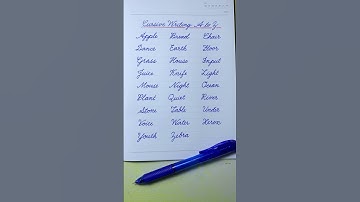 Cursive Writing A to Z
Apple Bread Chair
Dance Earth Floor
Grass House Input
Juice Knife Light
Mouse Night Ocean
Plant Quiet River
Stone Table Under
Voice Water Xerox
Youth Zebra